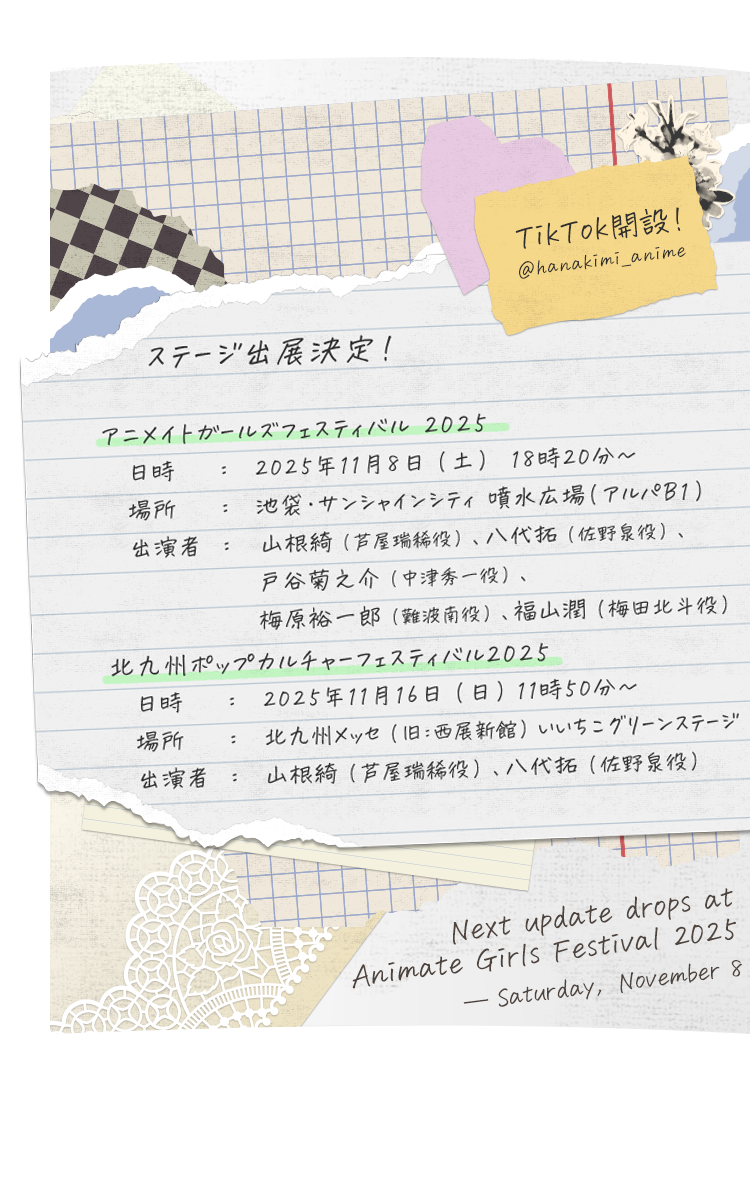 TikTok開設!
@hanakimi_anime
ステージ出展決定!
アニメイトガールズフェスティバル 2025
日時 : 2025年11月8日(土) 18時20分～
場所 : 池袋・サンシャインシティ 噴水広場(アルパB1)
出演者 : 山根綺(芦屋瑞稀役)、八代拓(佐野泉役)、
戸谷菊之介(中津秀一役)、
梅原裕一郎(難波南役)、福山潤(梅田北斗役)
北九州ポップカルチャーフェスティバル2025
日時 : 2025年11月16日(日)11時50分～
場所 : 北九州メッセ(旧:西展新館)いいちこグリーンステージ
出演者 : 山根綺(芦屋瑞稀役)、八代拓(佐野泉役)
Next update drops at
Animate Girls Festival 2025
— Saturday, November 8